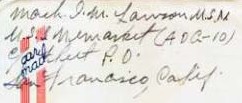 Mach. I. M. Lawson U.S.N
U.S.S Newmarket (ADG-10)
P.O.
San Francisco, Calif.
air mail